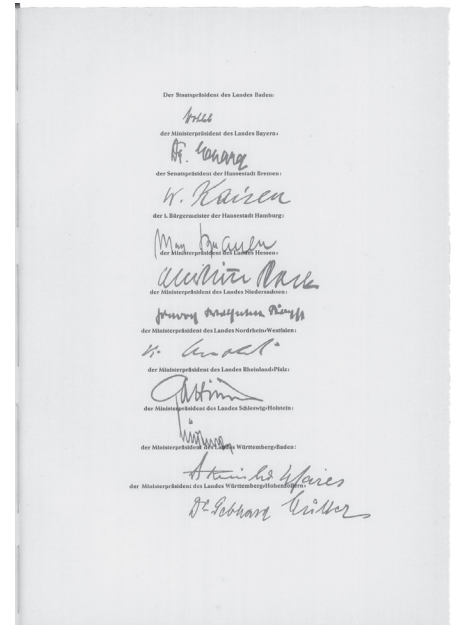 Der Staatspräsident des Landes Baden:
der Ministerpräsident des Landes Bayern:
Dr. Ehard
der Senatspräsident der Hansestadt Bremen:
W. Kaisen
der 1. Bürgermeister der Hansestadt Hamburg:
Max Brauer
der Ministerpräsident des Landes Hessen:
der Ministerpräsident des Landes Niedersachsen:
der Ministerpräsident des Landes Nordrhein-Westfalen:
K. Arnold
der Ministerpräsident des Landes Rheinland-Pfalz:
der Ministerpräsident des Landes Schleswig-Holstein:
der Ministerpräsident des Landes Württemberg-Baden:
der Ministerpräsident des Landes Württemberg-Hohenzollern:
Dr Gebhard Müller